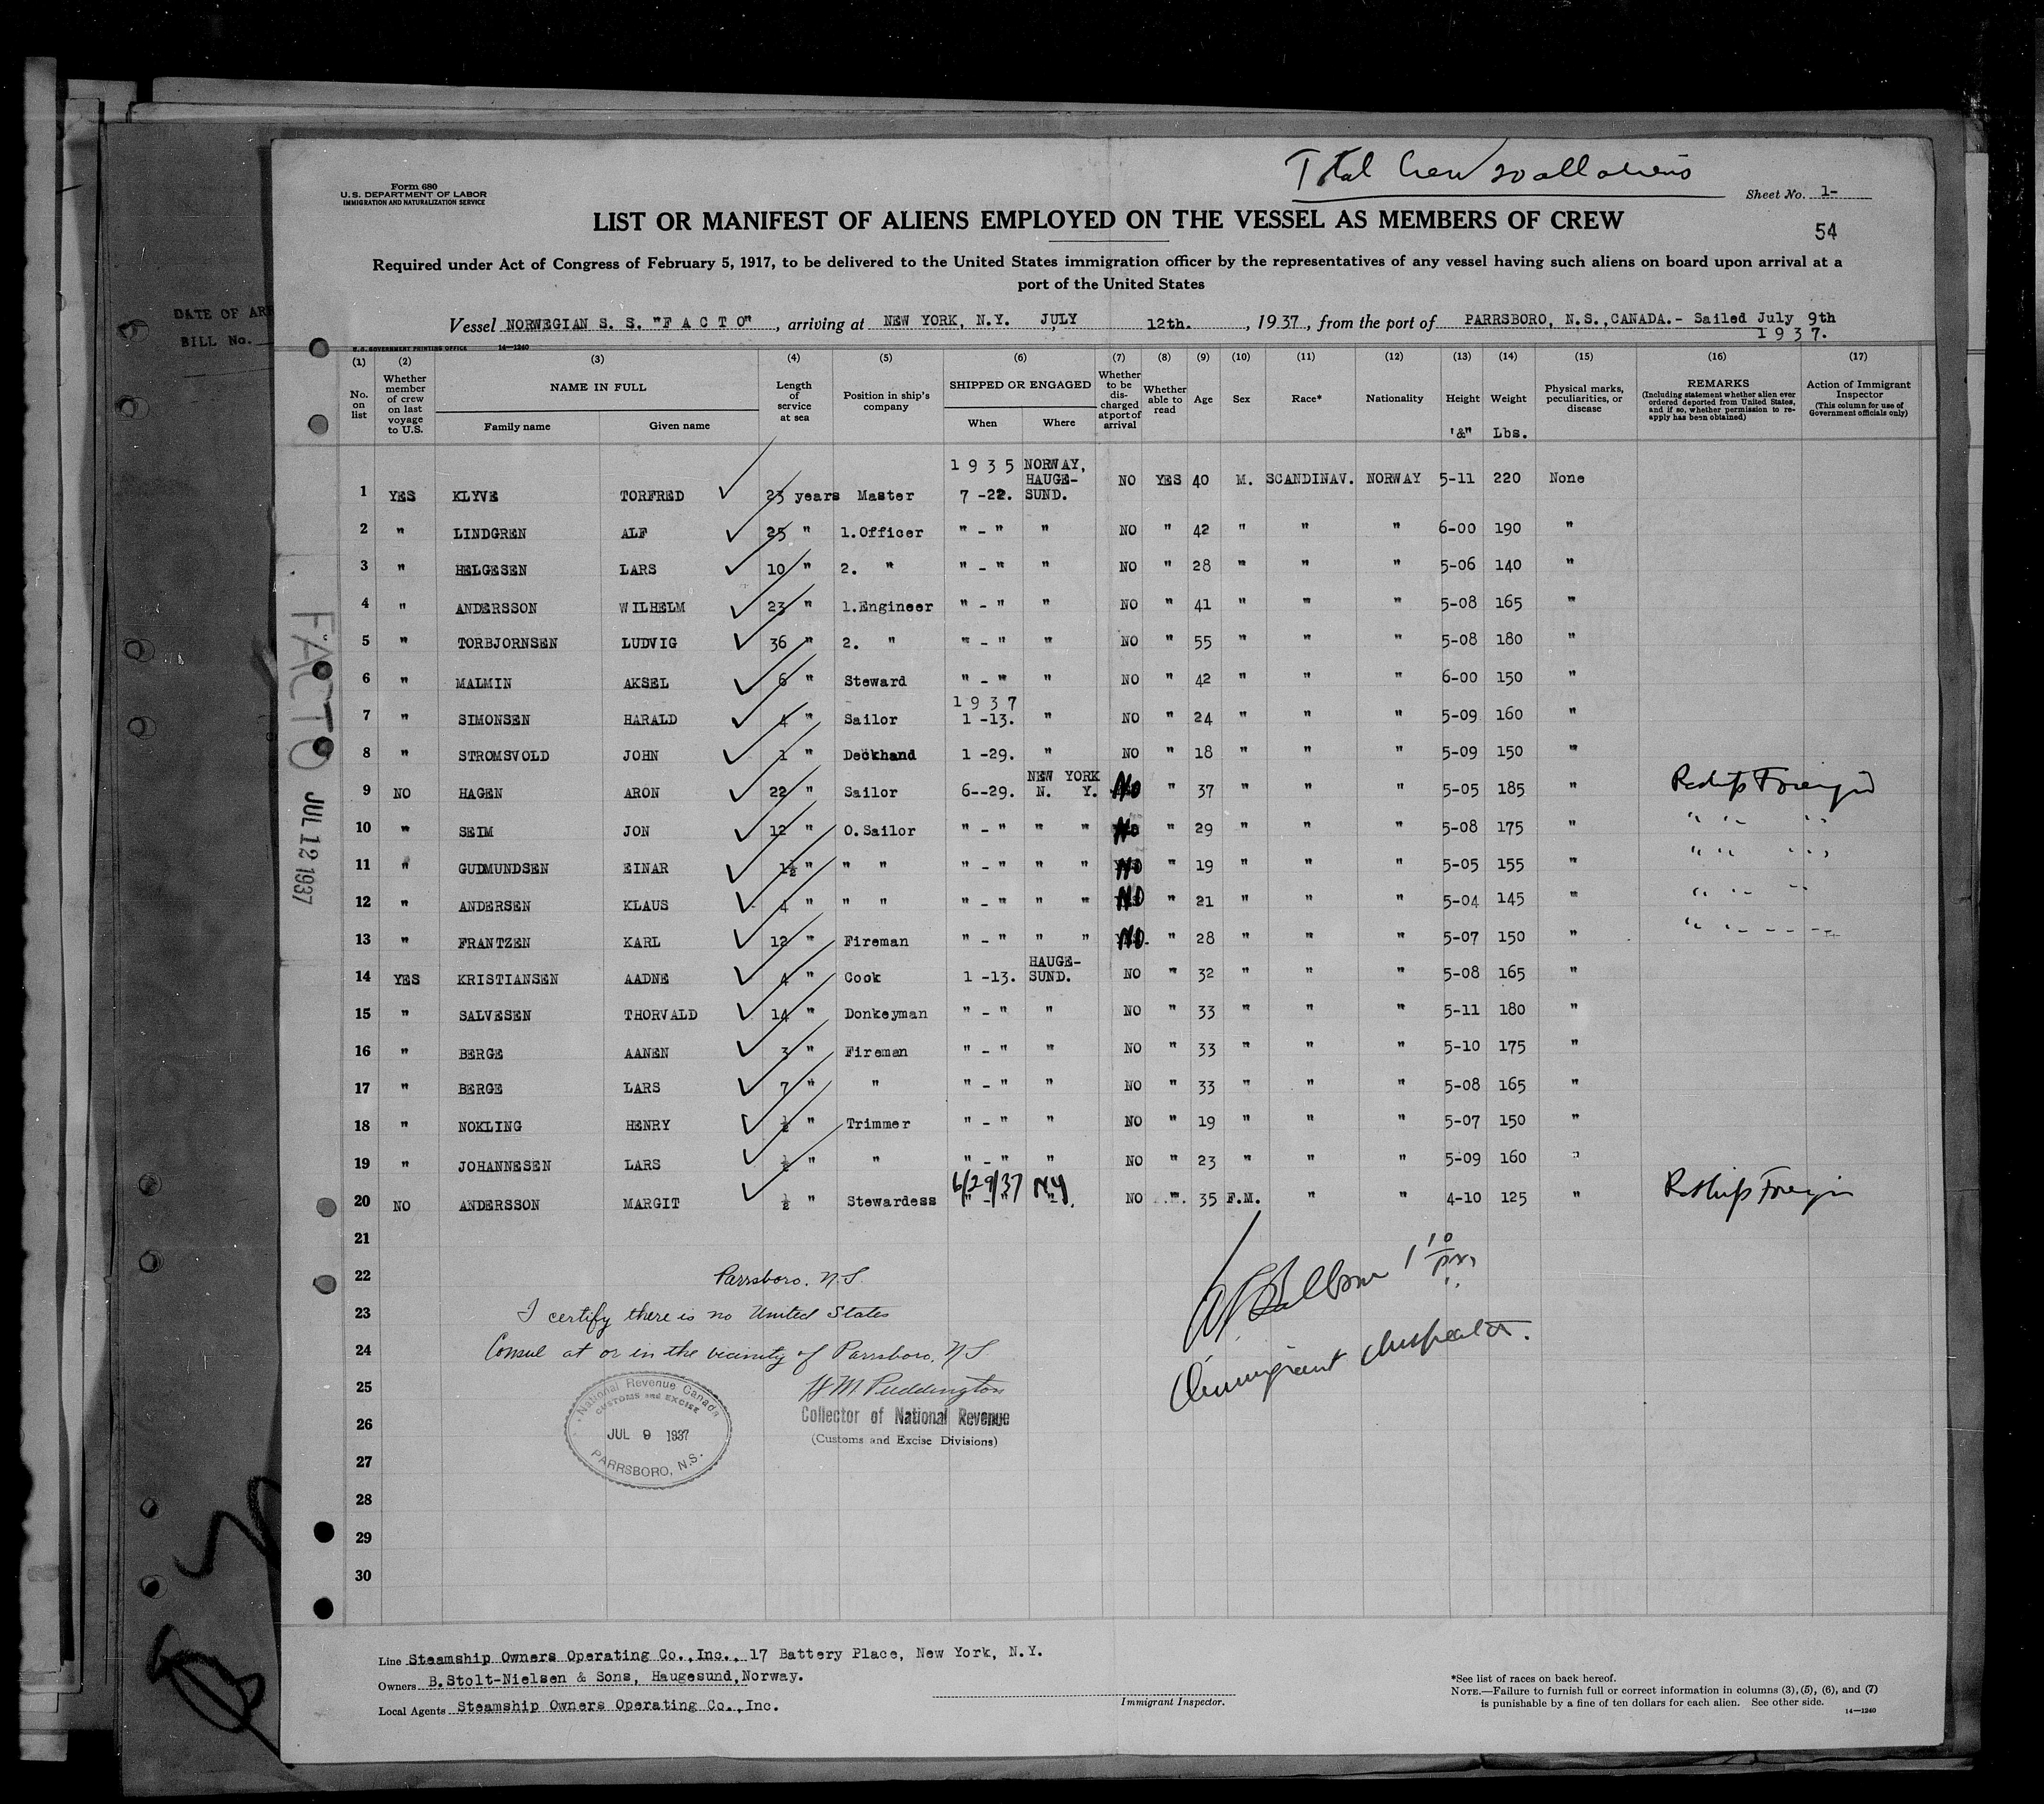 Total Crew 20 all aliens
Form 680
U.S. DEPARTMENT OF LABOR
IMMIGRATION AND NATURALIZATION SERVICE
Sheet No. 1-
LIST OR MANIFEST OF ALIENS EMPLOYED ON THE VESSEL AS MEMBERS OF CREW
54
Required under Act of Congress of February 5, 1917, to be delivered to the United States immigration officer by the representatives of any vessel having such aliens on board upon arrival at a
port of the United States
DATE OF
BILL No.
Vessel NORWEGIAN S. S. "F A C T O", arriving at NEW YORK, N.Y. JULY 12th., 1937, from the port of PARRSBORO, N.S.,CANADA.- Sailed July 9th
1 9 3 7.
U.S. GOVERNMENT PRINTING OFFICE 14-1240
(1) (2) (3) (4) (5) (6) (7) (8) (9) (10) (11) (12) (13) (14) (15) (16) (17)
No. on list
Whether member of crew on last voyage to U.S.
NAME IN FULL
Family name Given name
Length of service at sea
Position in ship's company
SHIPPED OR ENGAGED
When Where
Whether to be discharged at port of arrival
Whether able to read
Age
Sex
Race*
Nationality
Height '&"
Weight Lbs.
Physical marks, peculiarities, or disease
REMARKS
(Including statement whether alien ever ordered deported from United States, and if so, whether permission to reapply has been obtained)
Action of Immigrant Inspector
(This column for use of Government officials only)
1 YES KLYVE TORFRED 23 years Master 1 9 3 5 7 -22. NORWAY, HAUGE-SUND. NO YES 40 M. SCANDINAV. NORWAY 5-11 220 None
2 " LINDGREN ALF 25 " 1.Officer " - " " NO " 42 " " " 6-00 190 "
3 " HELGESEN LARS 10 " 2. " " - " " NO " 28 " " " 5-06 140 "
4 " ANDERSSON WILHELM 23 " 1.Engineer " - " " NO " 41 " " " 5-08 165 "
5 " TORBJORNSEN LUDVIG 36 " 2. " " - " " NO " 55 " " " 5-08 180 "
6 " MALMIN AKSEL 6 " Steward " - " " NO " 42 " " " 6-00 150 "
7 " SIMONSEN HARALD 4 " Sailor 1 9 3 7 1 -13. " NO " 24 " " " 5-09 160 "
8 " STROMSVOLD JOHN 1 " Deckhand 1 -29. " NO " 18 " " " 5-09 150 "
9 NO HAGEN ARON 22 " Sailor 6--29. NEW YORK N. Y. No " 37 " " " 5-05 185 " Reships Foreign
10 " SEIM JON 12 " O.Sailor " - " " " No " 29 " " " 5-08 175 " " " "
11 " GUDMUNDSEN EINAR 1½ " " " " - " " " No " 19 " " " 5-05 155 " " " "
12 " ANDERSEN KLAUS 4 " " " " - " " " No " 21 " " " 5-04 145 " " " "
13 " FRANTZEN KARL 12 " Fireman " - " " " No. " 28 " " " 5-07 150 " " " "
14 YES KRISTIANSEN AADNE 4 " Cook 1 -13. HAUGE-SUND. NO " 32 " " " 5-08 165 "
15 " SALVESEN THORVALD 14 " Donkeyman " - " " NO " 33 " " " 5-11 180 "
16 " BERGE AANEN 3 " Fireman " - " " NO " 33 " " " 5-10 175 "
17 " BERGE LARS 7 " " " - " " NO " 33 " " " 5-08 165 "
18 " NOKLING HENRY ½ " Trimmer " - " " NO " 19 " " " 5-07 150 "
19 " JOHANNESEN LARS ½ " " " - " " NO " 23 " " " 5-09 160 "
20 NO ANDERSSON MARGIT ½ " Stewardess 6/29/37 NY. NO " 35 F.M. " " 4-10 125 " Reships Foreign
21
22
23
24
25
26
27
28
29
30
FACTO JUL 12 1937
Parrsboro. N.S.
I certify there is no United States
Consul at or in the vicinity of Parrsboro, N S
H M Puddington
Collector of National Revenue
(Customs and Excise Divisions)
National Revenue Canada
CUSTOMS and EXCISE
JUL 9 1937
PARRSBORO, N.S.
1 10 pm
Immigrant Inspector.
Line Steamship Owners Operating Co.,Inc., 17 Battery Place, New York, N.Y.
Owners B.Stolt-Nielsen & Sons, Haugesund,Norway.
Local Agents Steamship Owners Operating Co.,Inc.
Immigrant Inspector.
*See list of races on back hereof.
NOTE.—Failure to furnish full or correct information in columns (3),(5), (6), and (7)
is punishable by a fine of ten dollars for each alien. See other side.
14—1240